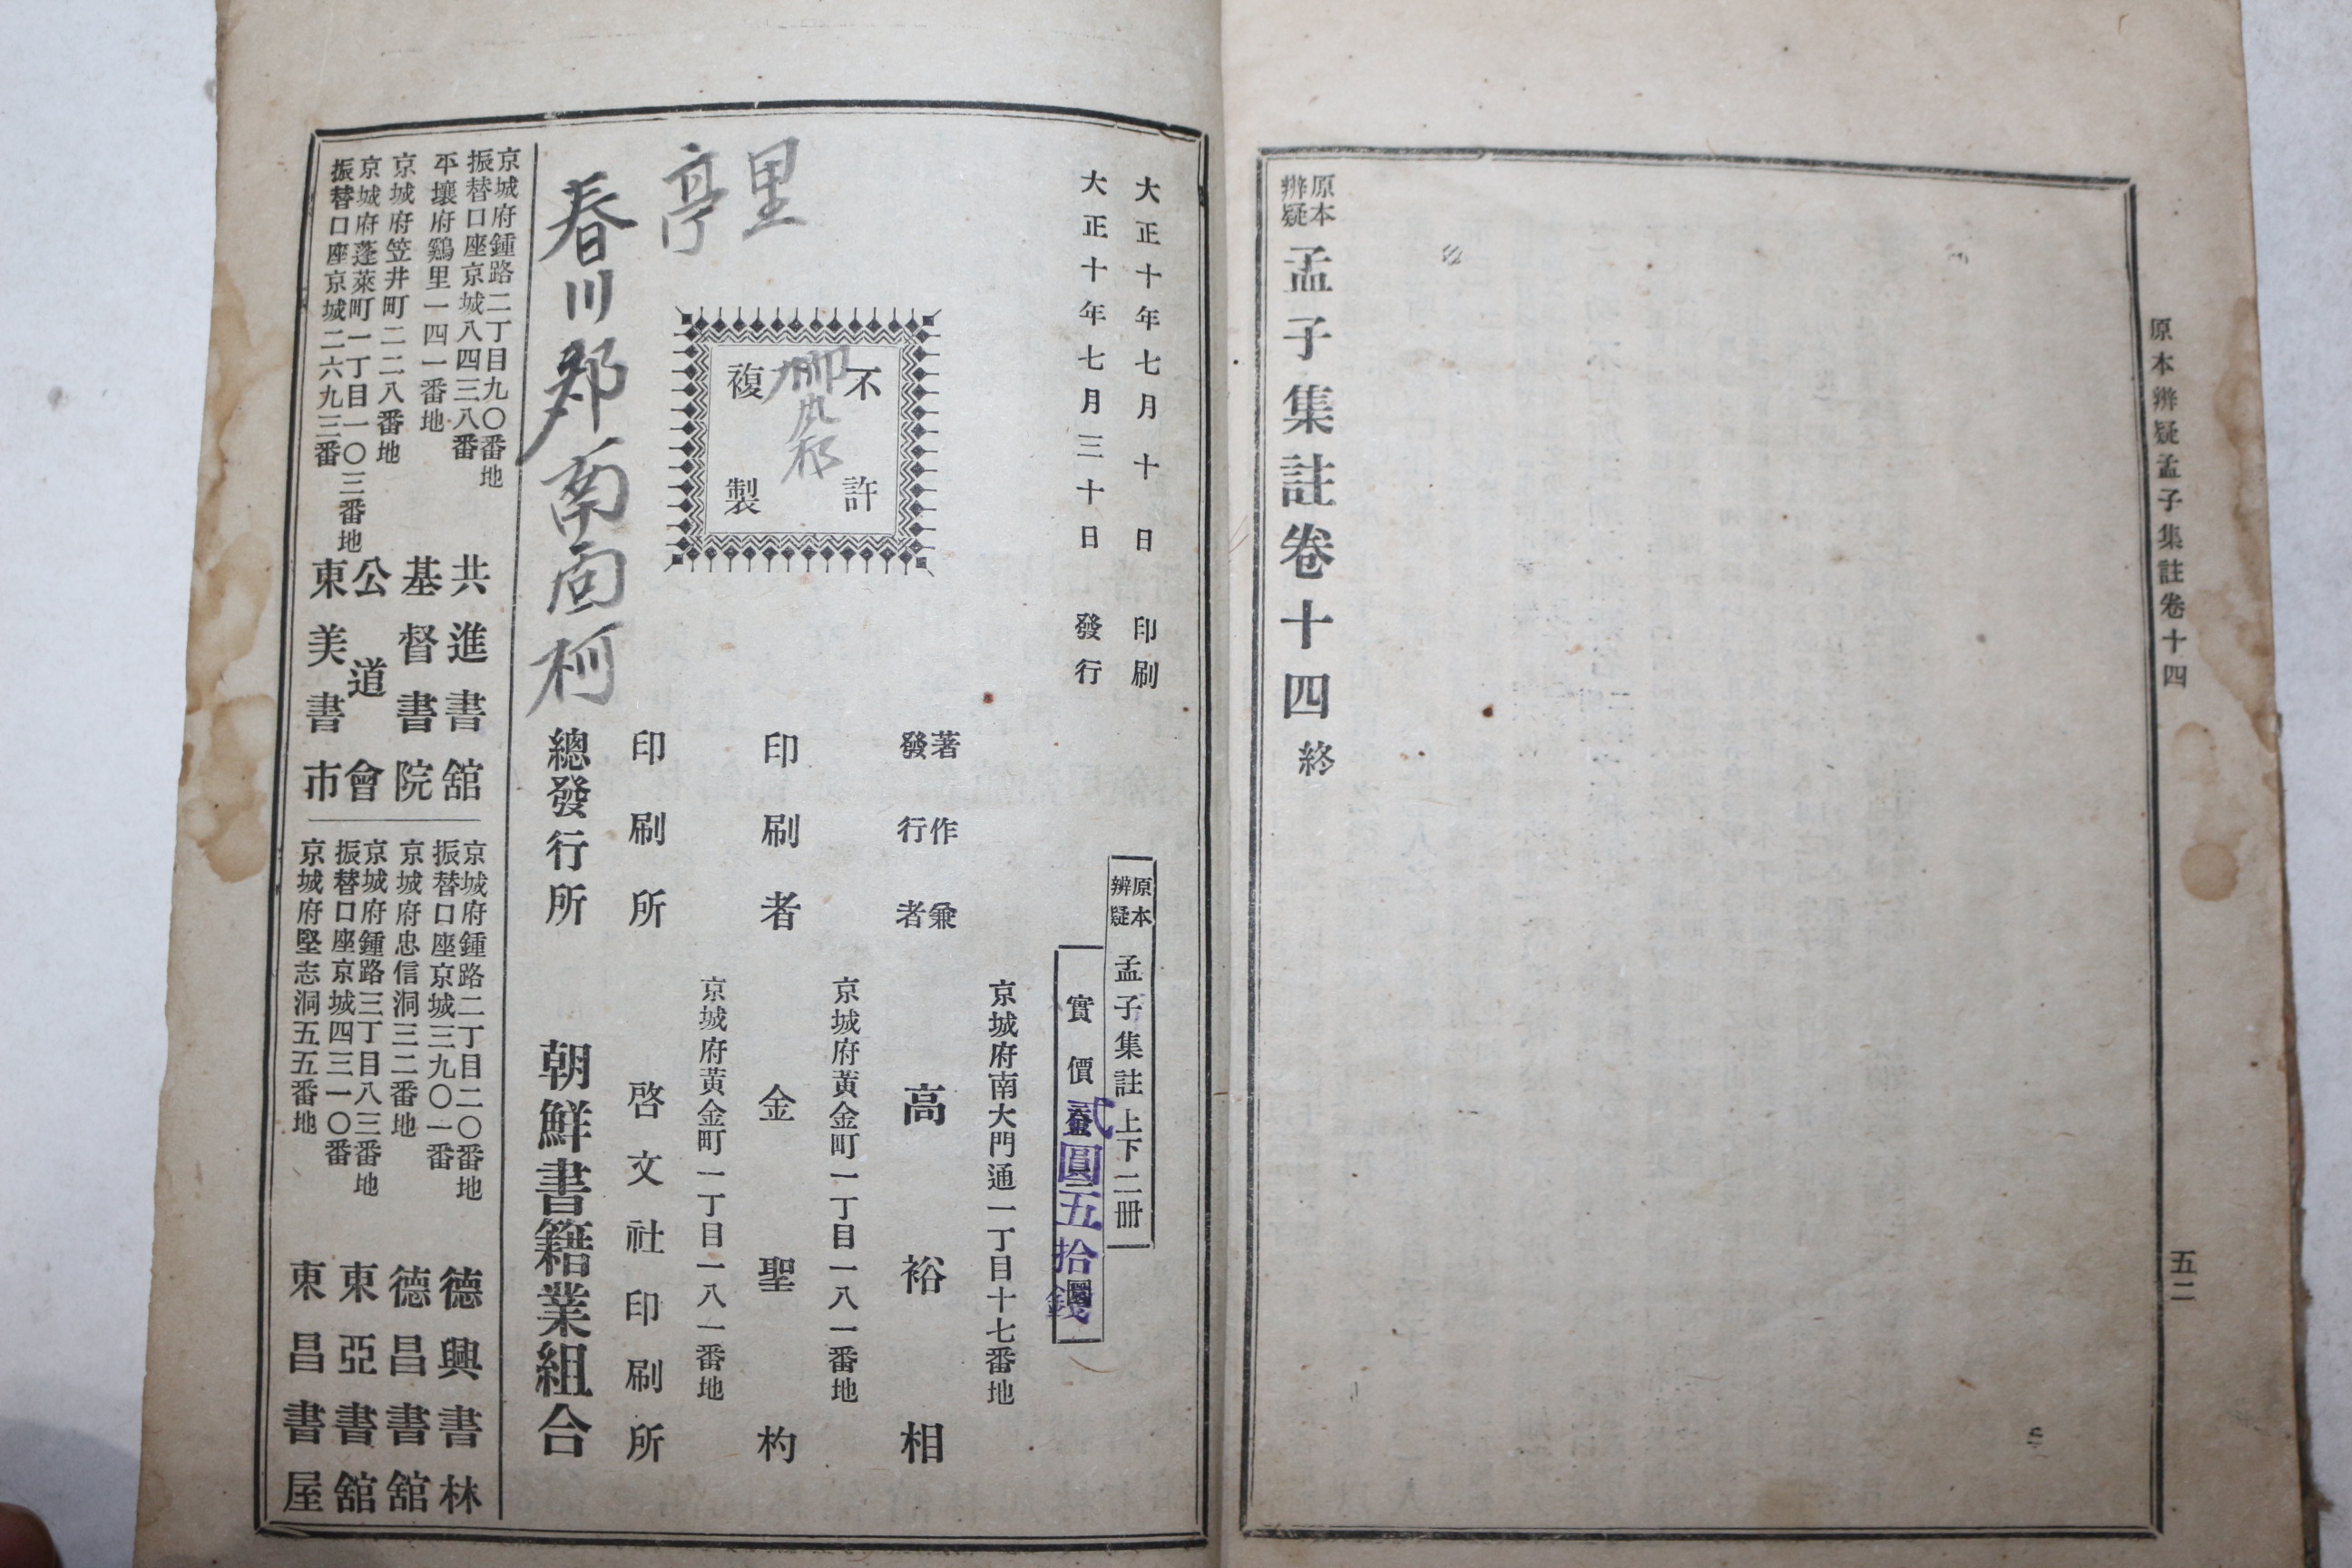 原本辨疑孟子集註卷十四
五二
原本辨疑 孟子集註卷十四 終
大正十年七月十日 印刷
大正十年七月三十日 發行
原本辨疑 孟子集註 上下二冊
實價金
貳圓五拾錢
京城府南大門通一丁目十七番地
著作兼發行者 高裕相
京城府黃金町一丁目一八一番地
印刷者 金聖杓
京城府黃金町一丁目一八一番地
印刷所 啓文社印刷所
總發行所 朝鮮書籍業組合
不許
複製
春川郡南面柯
亭里
京城府鍾路二丁目九〇番地
振替口座京城八四三八番
共進書舘
平壤府鷄里一四一番地
基督書院
京城府笠井町二二八番地
公道會
京城府蓬萊町一丁目一〇三番地
振替口座京城二六九三番
東美書市
京城府鍾路二丁目二〇番地
振替口座京城三九〇一番
德興書林
京城府忠信洞三二番地
德昌書舘
京城府鍾路三丁目八三番地
振替口座京城四三一〇番
東亞書舘
京城府堅志洞五五番地
東昌書屋